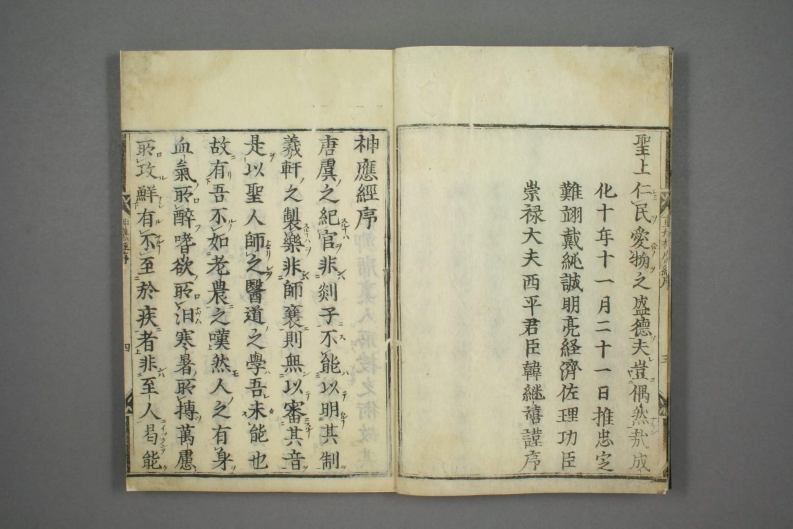 聖上仁民愛物之盛德夫豈偶然哉成
化十年十一月二十一日推忠定
難翊戴純誠明亮経濟佐理功臣
崇禄大夫西平君臣韓継禧謹序
神應經序
唐虞之紀官非剡子不能以明其制
羲軒之製樂非師襄則無以審其音
是以聖人師之醫道之學吾未能也
故有吾不如老農之嘆然人之有身
血氣所醉嗜欲所汩寒暑所摶萬慮
所攻鮮有不至於疾者非至人曷能
三
四